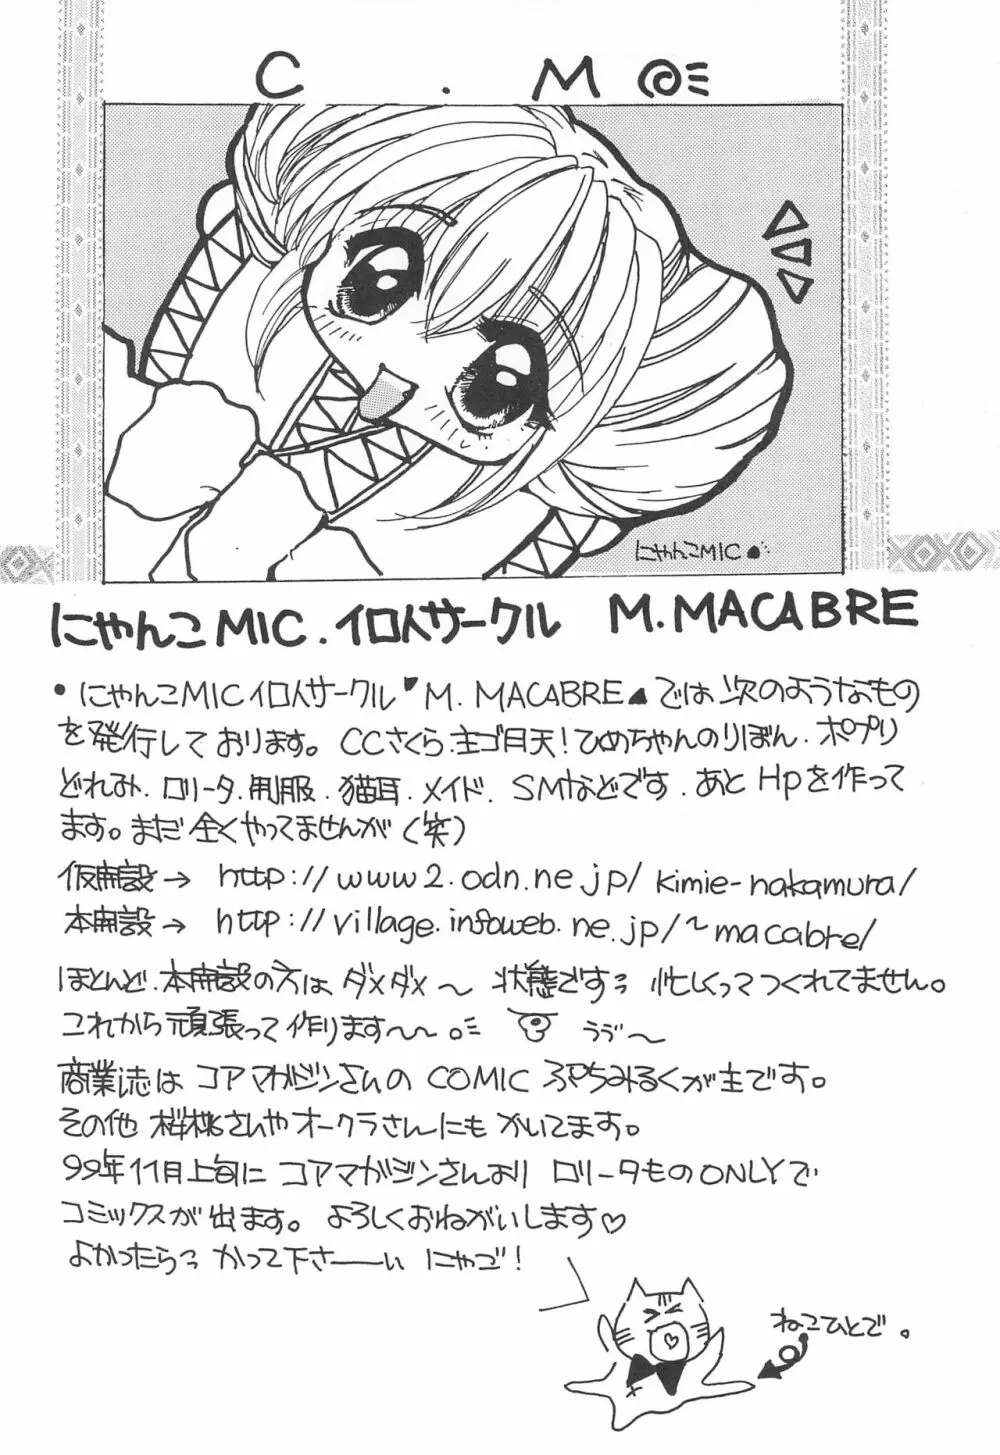 C . M
にゃんこMIC
にゃんこMIC.イロ人サークル M.MACABRE
・にゃんこMICイロ人サークル M. MACABRE では次のようなもの
を発行しております。CCさくら.主ゴ月天!ひめちゃんのりぼん.ポプリ
どれみ.ロリータ.制服.猫耳.メイド.SMなどです.あとHpを作って
ます。まだ全くやってませんが(笑)
仮開設→ http://www2.odn.ne.jp/kimie-nakamura/
本開設→ http://village.infoweb.ne.jp/~macabre/
ほとんど.本開設の方はダメダメ~状態ですう 忙しくってつくれてません。
これから頑張って作ります~~。 うづ~
商業誌はコアマガジンさんのCOMICぷちみるくが主です。
その他 桜桃さんやオークラさんにもかいてます。
99年11月上旬にコアマガジンさんより ロリータものONLYで
コミックスが出ます。よろしくおねがいします♡
よかったらっ かって下さーい にゃご!
ねこひとで。